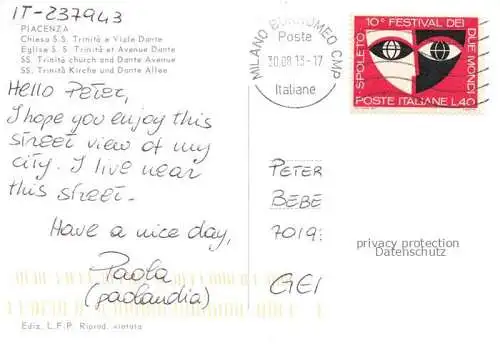 IT-237943
PIACENZA
Chiesa S.S. Trinità e Viale Dante
Eglise S.S. Trinité et Avenue Dante
SS. Trinità church and Dante Avenue
SS. Trinità Kirche und Dante Allee
Hello Peter,
I hope you enjoy this
street view of my
city. I live near
this street.
Have a nice day,
Paola
(paolandia)
Ediz. L.F.P. Riprod. vietata
MILANO BORROMEO CMP
Poste
30.08 13-17
Italiane
10° FESTIVAL DEI DUE MONDI
SPOLETO
POSTE ITALIANE L.40
PETER
BEBE
7019
GEI
privacy protection
Datenschutz